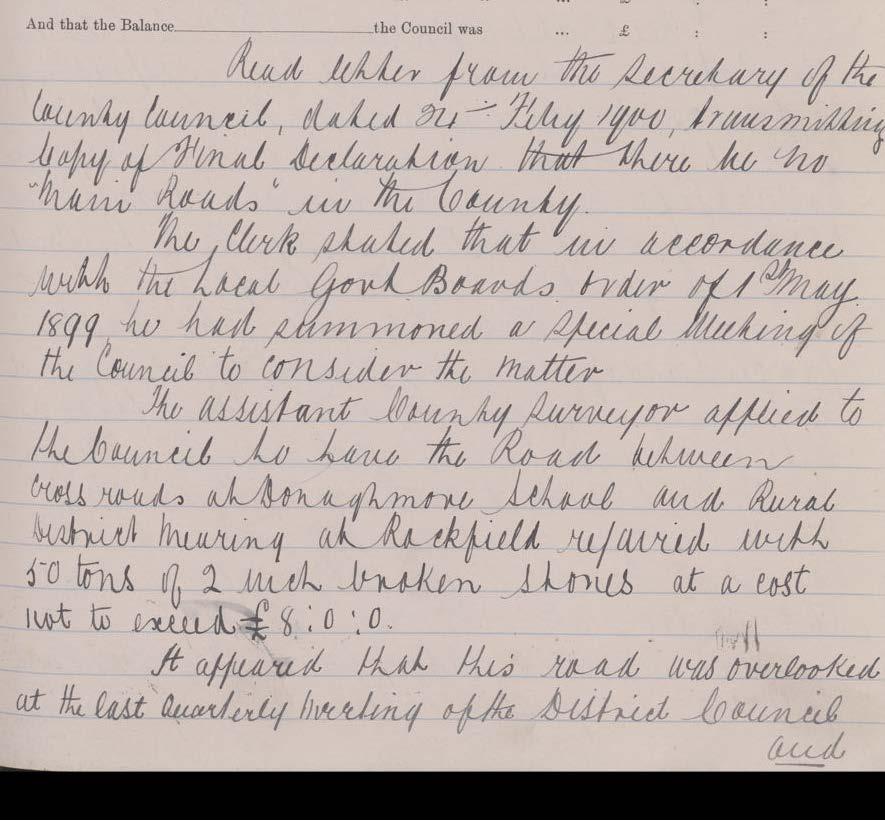 And that the Balance the Council was ... £ : :
Read letter from the Secretary of the
County Council, dated Feby 1900, transmitting
Copy of Final Declaration that there be no
"Main Roads" in the County.
The Clerk stated that in accordance
with the Local Govt Boards order of 1st May
1899 he had summoned a Special Meeting of
the Council to consider the matter
The assistant County Surveyor applied to
the Council to have the Road between
Cross roads at Donaghmore School and Rural
District Mearing at Rockfield repaired with
50 tons of 2 inch broken stones at a cost
not to exceed £8:0:0.
It appeared that this road was overlooked
at the last Quarterly Meeting of the District Council
and